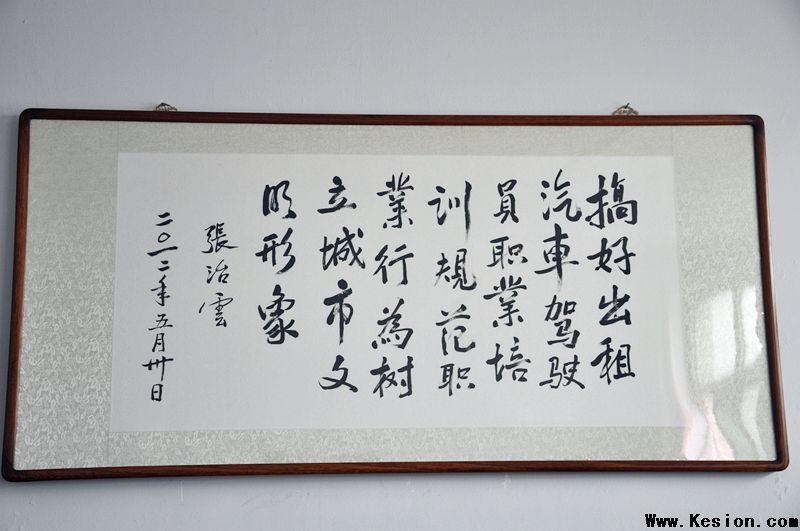 搞好出租
汽車驾驶
員职業培
训規范职
業行為树
立城市文
明形象
張治雲
二〇一二年五月卅日
Www.Kesion.com